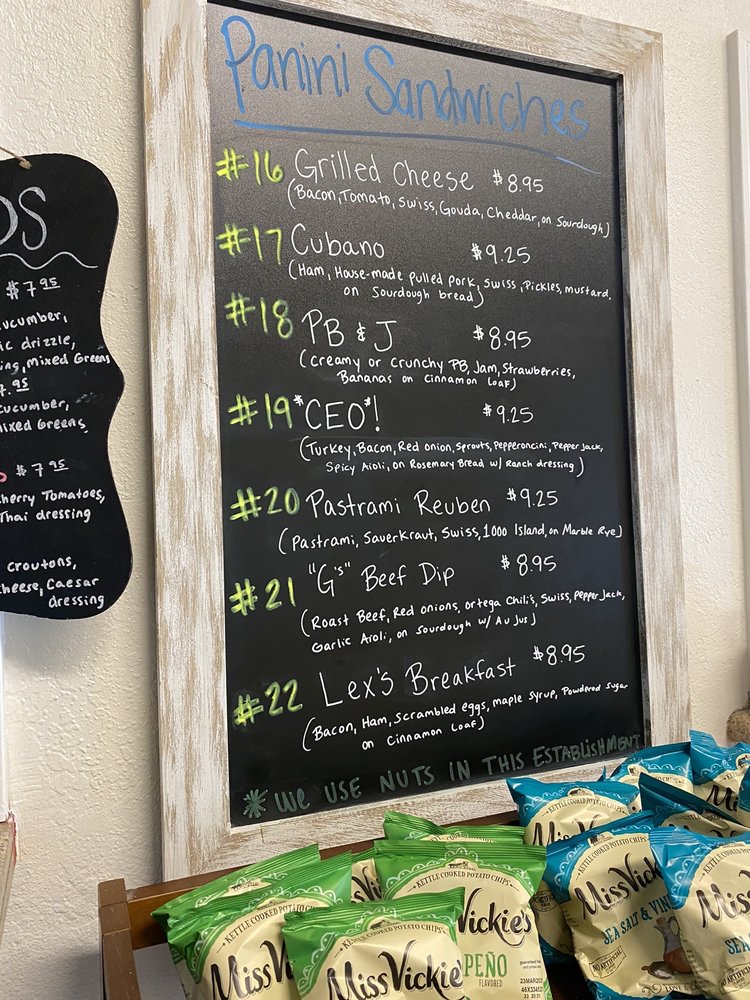 Panini Sandwiches
#16 Grilled Cheese $8.95
(Bacon, Tomato, Swiss, Gouda, Cheddar, on Sourdough)
#17 Cubano $9.25
(Ham, House-made pulled pork, Swiss, Pickles, mustard.
on Sourdough bread)
#18 PB & J $8.95
(creamy or crunchy PB, Jam, Strawberries,
Bananas on Cinnamon Loaf)
#19 "CEO"! $9.25
(Turkey, Bacon, Red onion, Sprouts, Pepperoncini, Pepper Jack,
Spicy Aioli, on Rosemary Bread w/ Ranch dressing)
#20 Pastrami Reuben $9.25
(Pastrami, Sauerkraut, Swiss, 1000 Island, on Marble Rye)
#21 "G's" Beef Dip $8.95
(Roast Beef, Red onions, ortega Chili's, Swiss, Pepper Jack,
Garlic Aioli, on Sourdough w/ Au Jus)
#22 Lex's Breakfast $8.95
(Bacon, Ham, Scrambled eggs, maple syrup, Powdered Sugar
on Cinnamon Loaf)
* WE USE NUTS IN THIS ESTABLISHMENT
DS
$7.95
ucumber,
ic drizzle,
ing, Mixed Greens
7.95
cucumber,
ixed Greens
$7.95
cherry Tomatoes,
Thai dressing
croutons,
cheese, Caesar
dressing
KETTLE COOKED POTATO CHIPS
Miss Vickie's
KETTLE COOKED POTATO CHIPS
Miss Vickie's
KETTLE COOKED POTATO CHIPS
Vickie's
PEÑO
FLAVORED
KETTLE COOKED POTATO CHIPS
Miss Vickie's
SEA SALT & VIN
KETTLE COOKED POTATO CHIPS
Miss
SEA